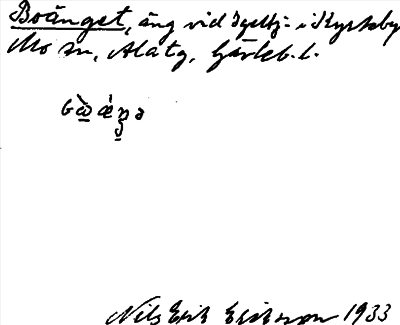 Boänget, äng vid i Kyrkby
Mo sn, Ala tg, Gävleb. l.
Nils Erik Eriksson 1933